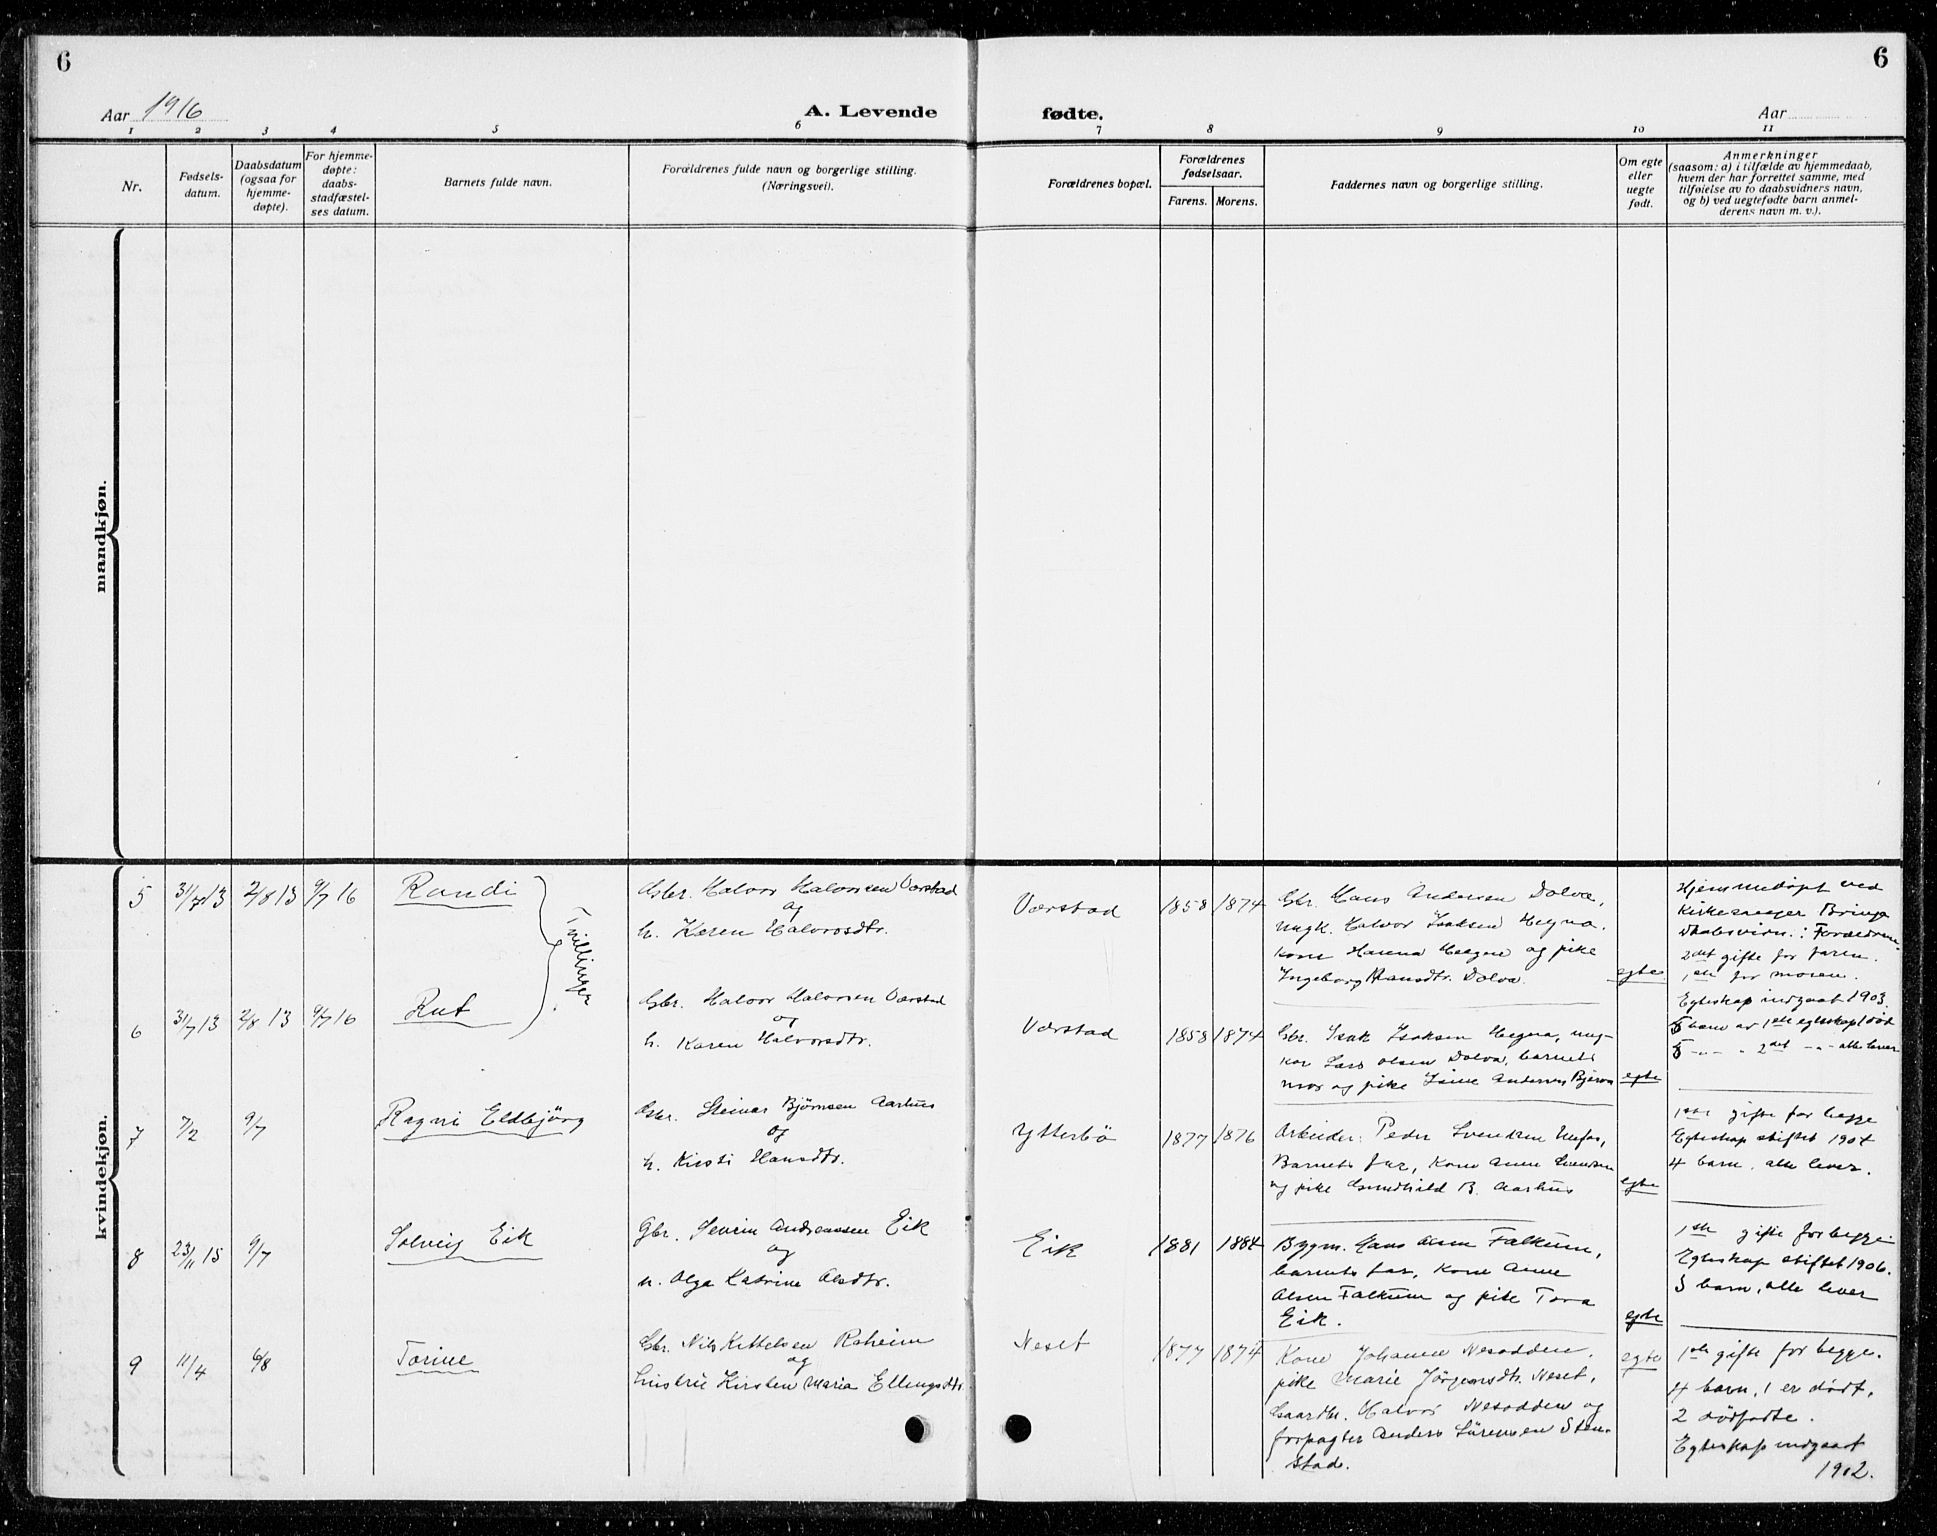 6
6
Aar 1916
A. Levende
fødte.
Aar
1 2 3 4 5 6 7 8 9 10 11
Nr.
Fødsels-
datum.
Daabsdatum
(ogsaa for
hjemme-
døpte).
For hjemme-
døpte:
daabs-
stadfæstel-
ses datum.
Barnets fulde navn.
Forældrenes fulde navn og borgerlige stilling.
(Næringsvei).
Forældrenes bopæl.
Forældrenes
fødselsaar.
Farens. Morens.
Faddernes navn og borgerlige stilling.
Om egte
eller
uegte
født.
Anmerkninger
(saasom: a) i tilfælde av hjemmedaab,
hvem der har forrettet samme, med
tilføielse av to daabsvidners navn,
og b) ved uegtefødte barn anmel-
derens navn m. v.).
mandkjøn.
kvindekjøn.
5 31/7 13 2/8 13 9/7 16 Randi
Tvillinger
Gbr. Halvor Halvorsen Værstad
og
h. Karen Halvorsdtr.
Værstad 1858 1874
Gbr. Hans Andersen Dolva,
ungk. Halvor Isaksen Hegna.
kone Hanna Hegna og pike
Ingeborg Hansdtr. Dolva.
egte
Hjemmedøpt ved
Kirkesanger Bringa
Daabsvidn.: Forældrene.
2det gifte for faren.
1ste for moren.
Egteskap indgaat 1903.
6 31/7 13 2/8 13 9/7 16 Rut
Gbr. Halvor Halvorsen Værstad
og
h. Karen Halvorsdtr.
Værstad 1858 1874
Gbr. Isak Isaksen Hegna, ung-
kar Lars Olsen Dolva, barnets
mor og pike Andersen
egte
barn av 1ste egteskap 1 død
2det alle lever
7 7/2 9/7 Ragni Eldbjörg
Gbr. Steinar Bjørnsen Aarhus
og
h. Kirsti Hansdtr.
Ytterbö 1877 1876
Arbeider: Peder Svendsen Ulefos,
Barnets far, kone Anne Svendsen
og pike Gundhild B. Aarhus
egte
1ste gifte for begge
Egteskap stiftet 1904
4 barn, alle lever.
8 23/11 15 9/7 Solveig Eik
Gbr. Severin Andreassen Eik
og
h. Olga Katrine Olsdtr.
Eik 1881 1884
Bygm. Hans Olsen Falkum,
barnets far, kone Anne
Olsen Falkum og pike Tora
Eik.
egte
1ste gifte for begge
Egteskap stiftet 1906.
5 barn, alle lever
9 11/4 6/8 Torine
Gbr. Nils Kittelsen Raheim
og
hustru Kirsten Maria Ellingsdtr.
Neset 1877 1874
Kone Johanne Nesodden,
pike Marie Jörgensdtr. Neset,
Gaardbr. Halvor Nesodden og
forpagter Anders Sörensen Sten-
stad.
egte
1ste gifte for begge.
4 barn, 1 er dödt,
2 dödfödte.
Egteskap indgaat
1902.